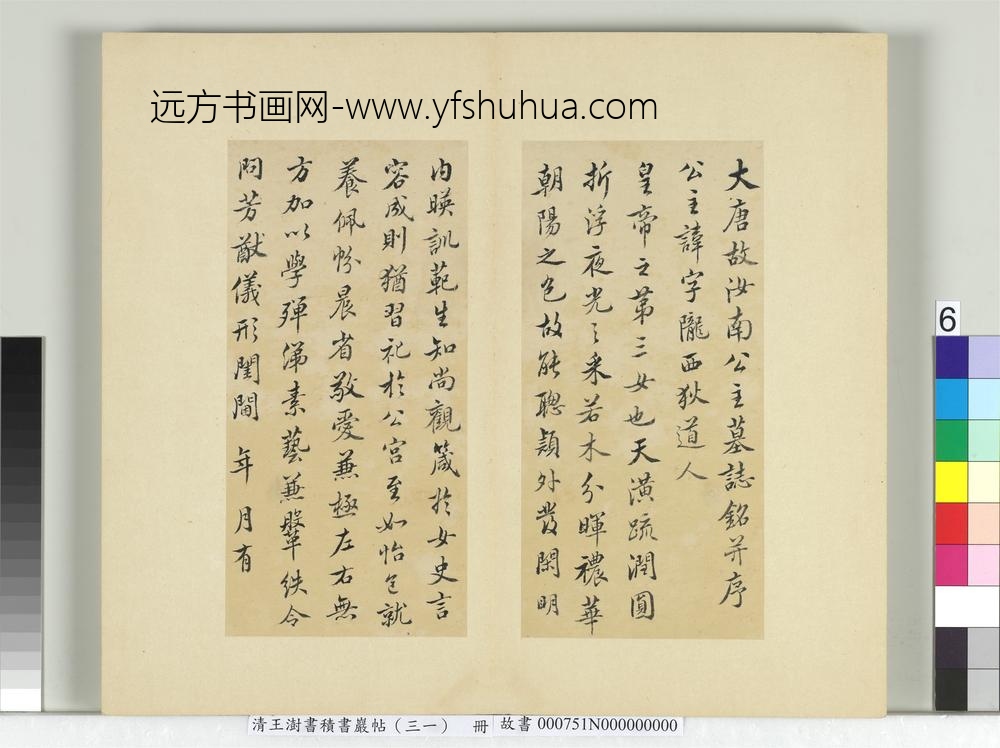 远方书画网-www.yfshuhua.com
大唐故汝南公主墓誌銘并序
公主諱字隴西狄道人
皇帝之第三女也天潢疏潤圓
折浮夜光之采若木分暉禯華
朝陽之色故能聰穎外發閑明
內暎訓範生知尚觀箴於女史言
容成則猶習礼於公宮至如怡色就
養佩帉晨省敬愛兼極左右無
方加以學殫綈素藝兼鞶紩令
問芳猷儀形閨閫 年 月有
6
清王澍書積書巖帖(三一) 冊
故書 000751N000000000